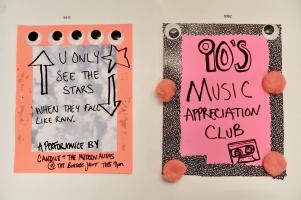 U ONLY
SEE THE
STARS
WHEN THEY FALL
LIKE RAIN.
A PERFORMANCE BY
@ THE
JOINT TUES 9pm
90'S
MUSIC
APPRECIATION
CLUB